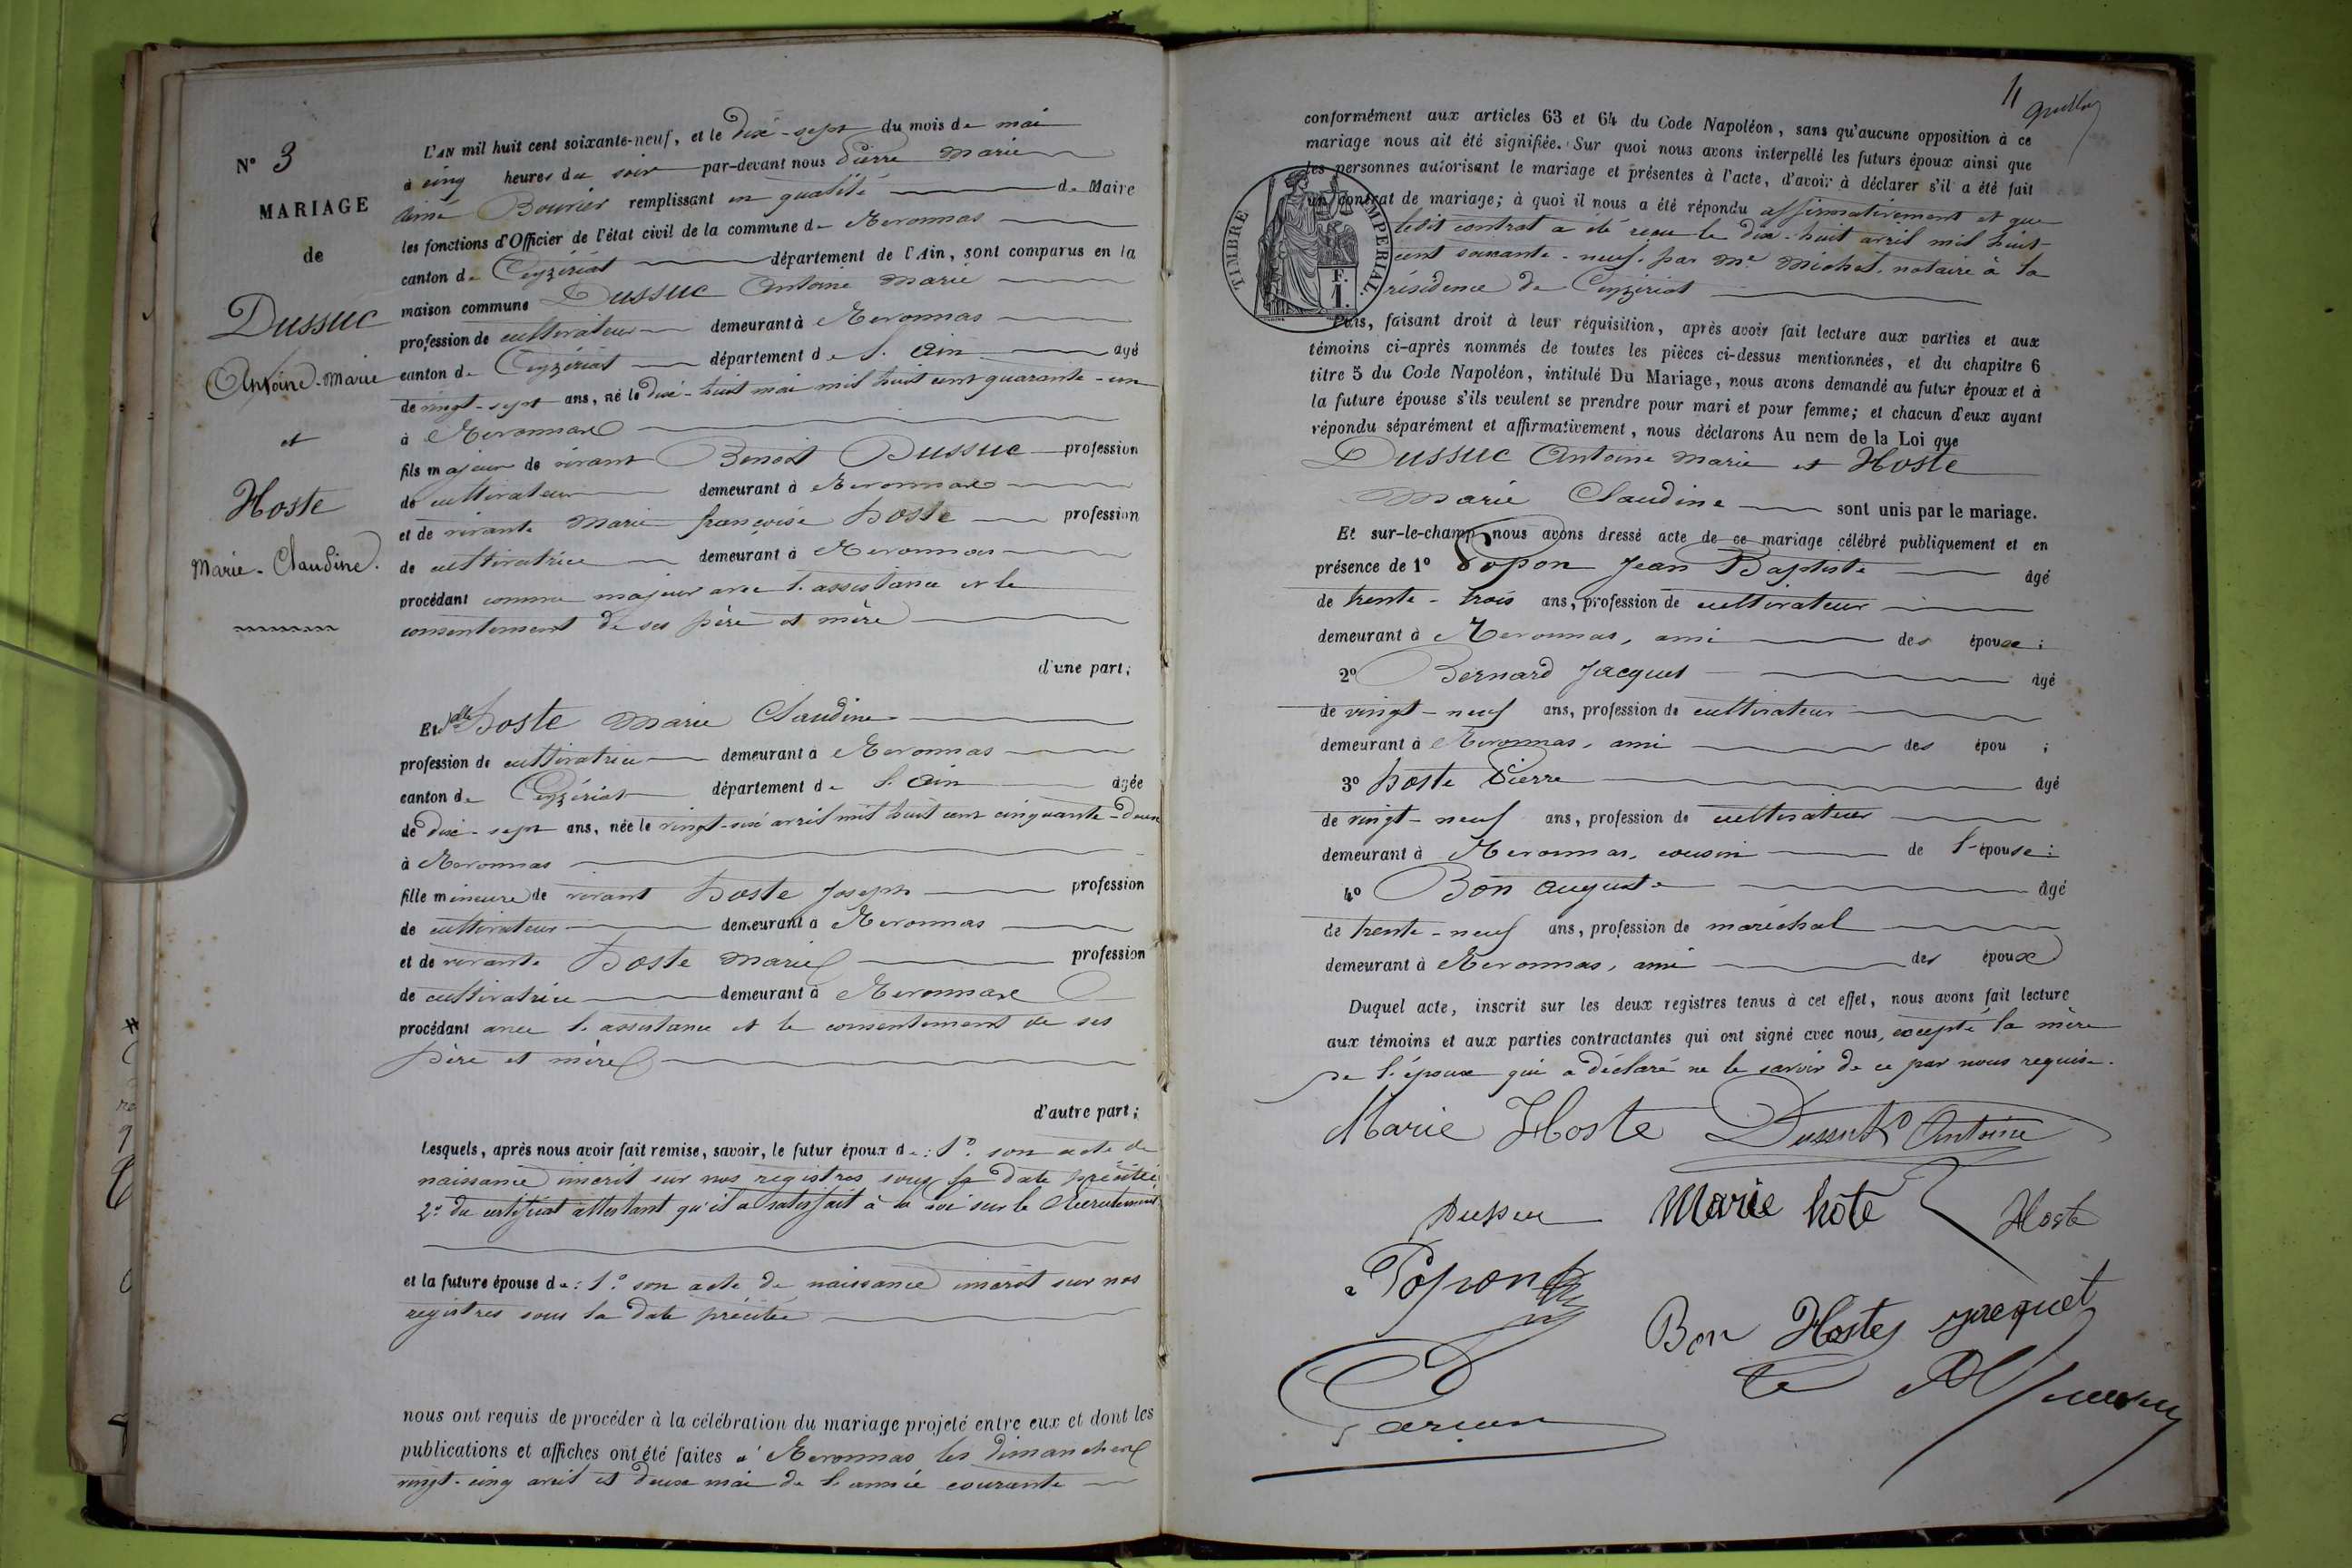 N° 3
MARIAGE
de
Dussuc
Antoine-Marie
et
Hoste
Marie-Claudine.
L'AN mil huit cent soixante-neuf, et le dix-sept du mois de mai
à cinq heures du soir par-devant nous Pierre Marie
Aimé Bouvier remplissant en qualité de Maire
les fonctions d'Officier de l'état civil de la commune de Revonnas
canton de Ceyzériat département de l'Ain, sont comparus en la
maison commune Dussuc Antoine Marie
profession de cultivateur demeurant à Revonnas
canton de Ceyzériat département de l'Ain agé
de vingt-sept ans, né le dix-huit mai mil huit cent quarante-un
à Revonnas
fils majeur de vivant Benoit Dussuc profession
de cultivateur demeurant à Revonnas
et de vivante Marie françoise hoste profession
de cultivatrice demeurant à Revonnas
procédant comme majeur avec l'assistance et le
consentement de ses père et mère
d'une part;
Et hoste Marie Claudine
profession de cultivatrice demeurant à Revonnas
canton de Ceyzériat département de l'Ain agée
de dix-sept ans, née le vingt-six avril mil huit cent cinquante-deux
à Revonnas
fille mineure de vivant hoste Joseph profession
de cultivateur demeurant à Revonnas
et de vivante hoste Marie profession
de cultivatrice demeurant à Revonnas
procédant avec l'assistance et le consentement de ses
père et mère
d'autre part;
Lesquels, après nous avoir fait remise, savoir, le futur époux de: 1° son acte de
naissance inscrit sur nos registres sous la date précitée
2° du certificat attestant qu'il a satisfait à la loi sur le Recrutement
et la future épouse de: 1° son acte de naissance inscrit sur nos
registres sous la date précitée
nous ont requis de procéder à la célébration du mariage projeté entre eux et dont les
publications et affiches ont été faites à Revonnas les dimanches
vingt-cinq avril et deux mai de l'année courante
11
conformément aux articles 63 et 64 du Code Napoléon, sans qu'aucune opposition à ce
mariage nous ait été signifiée. Sur quoi nous avons interpellé les futurs époux ainsi que
les personnes autorisant le mariage et présentes à l'acte, d'avoir à déclarer s'il a été fait
un contrat de mariage; à quoi il nous a été répondu affirmativement et que
ledit contrat a été reçu le dix-huit avril mil huit
cent soixante-neuf, par Me Michel, notaire à la
résidence de Ceyzériat
TIMBRE IMPERIAL.
F.
1.
Puis, faisant droit à leur réquisition, après avoir fait lecture aux parties et aux
témoins ci-après nommés de toutes les pièces ci-dessus mentionnées, et du chapitre 6
titre 5 du Code Napoléon, intitulé Du Mariage, nous avons demandé au futur époux et à
la future épouse s'ils veulent se prendre pour mari et pour femme; et chacun d'eux ayant
répondu séparément et affirmativement, nous déclarons Au nom de la Loi que
Dussuc Antoine Marie et Hoste
Marie Claudine sont unis par le mariage.
Et sur-le-champ nous avons dressé acte de ce mariage célébré publiquement et en
présence de 1° Popon Jean Baptiste âgé
de trente-trois ans, profession de cultivateur
demeurant à Revonnas, ami des époux;
2° Bernard Jacques âgé
de vingt-neuf ans, profession de cultivateur
demeurant à Revonnas, ami des épou ;
3° hoste Pierre âgé
de vingt-neuf ans, profession de cultivateur
demeurant à Revonnas, cousin de l'épouse;
4° Bon Auguste âgé
de trente-neuf ans, profession de maréchal
demeurant à Revonnas, ami des époux
Duquel acte, inscrit sur les deux registres tenus à cet effet, nous avons fait lecture
aux témoins et aux parties contractantes qui ont signé avec nous, excepté la mère
de l'époux qui a déclaré ne le savoir de ce par nous requise.
Marie Hoste Dussuc Antoine
Dussuc Marie hote Hoste
Popon
Bon Hoste jacquet